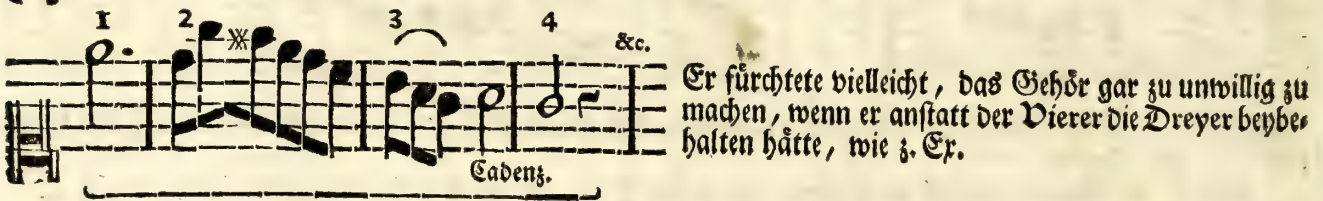 1 2 3 4 &c.
Er fürchtete vielleicht, das Gehör gar zu unwillig zu
machen, wenn er anstatt der Vierer die Dreyer beybe-
halten hätte, wie z. Ex.
Cadenz.